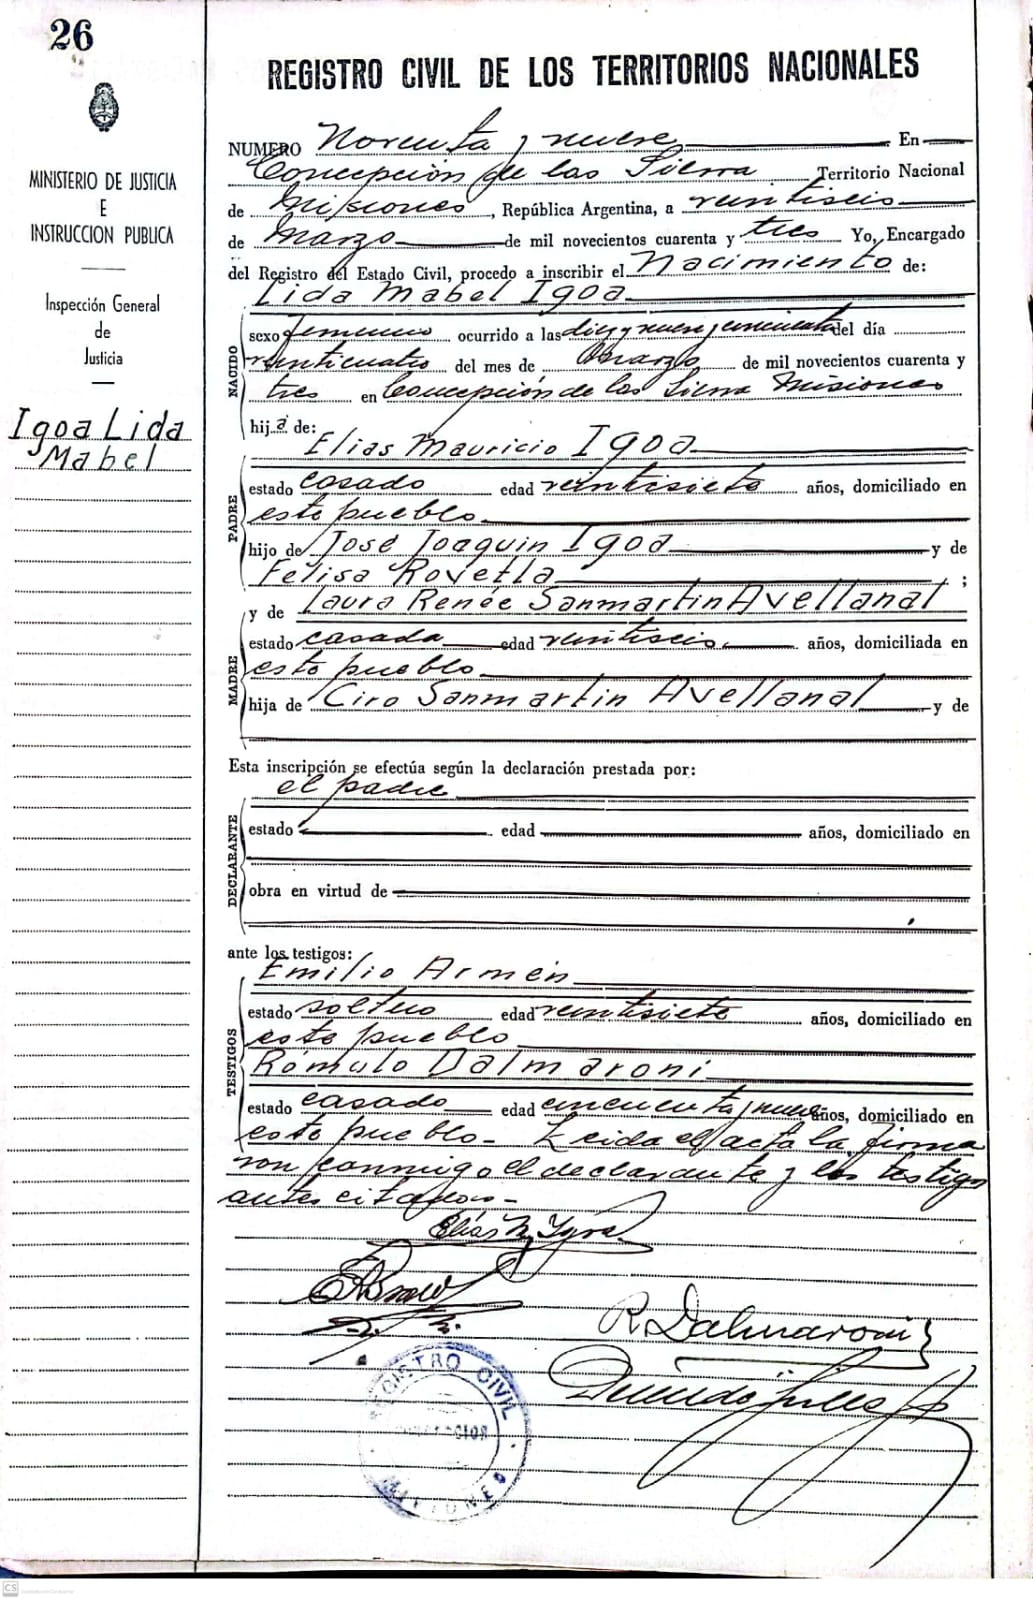 26
MINISTERIO DE JUSTICIA
E
INSTRUCCION PUBLICA
Inspección General
de
Justicia
Igoa Lida
Mabel
REGISTRO CIVIL DE LOS TERRITORIOS NACIONALES
NUMERO Noventa y nueve En
Concepción de las Sierra Territorio Nacional
de Misiones, República Argentina, a veintiseis
de Marzo de mil novecientos cuarenta y tres Yo, Encargado
del Registro del Estado Civil, procedo a inscribir el Nacimiento de:
Lida Mabel Igoa
NACIDO
sexo femenino ocurrido a las diez y nueve y cincuenta del día
veinticuatro del mes de Marzo de mil novecientos cuarenta y
tres en Concepción de las Sierra Misiones
hija de:
Elias Mauricio Igoa
PADRE
estado casado edad veintisiete años, domiciliado en
este pueblo
hijo de José Joaquin Igoa y de
Felisa Rovetta ;
y de Laura Renée Sanmartin Avellanal
MADRE
estado casada edad veintiseis años, domiciliada en
este pueblo
hija de Ciro Sanmartin Avellanal y de
Esta inscripción se efectúa según la declaración prestada por:
el padre
DECLARANTE
estado edad años, domiciliado en
obra en virtud de
ante los testigos:
Emilio Armen
TESTIGOS
estado soltero edad veintisiete años, domiciliado en
este pueblo
Rómulo Dalmaroni
estado casado edad cincuenta y nueve años, domiciliado en
este pueblo - Leida el acta la firma
ron conmigo el declarante y los testigos
antes citados -
Elias M. Igoa
R. Dalmaroni
REGISTRO CIVIL
MISIONES
CS